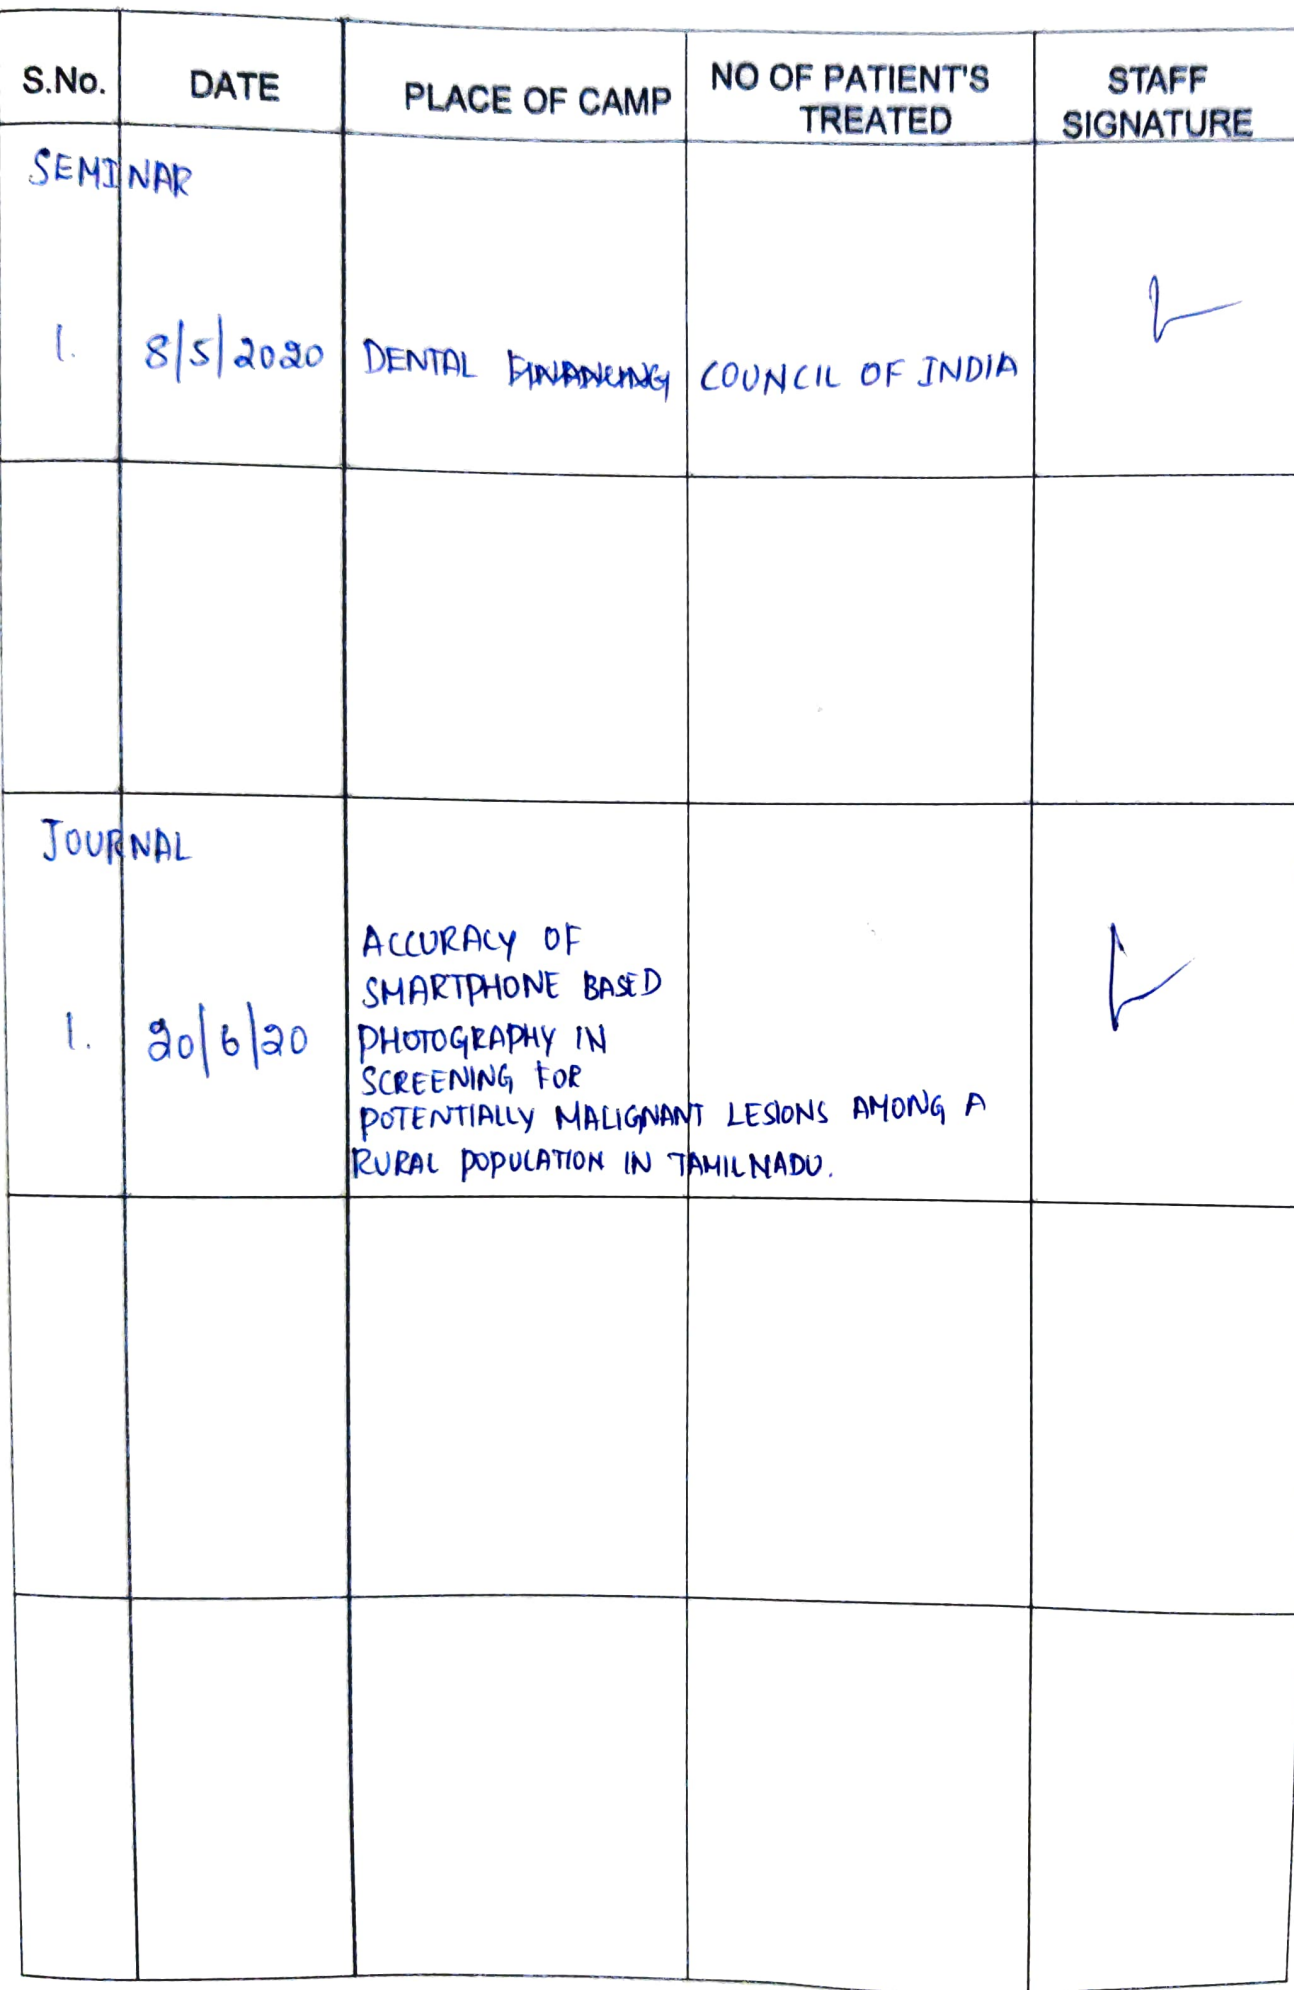 S.No. DATE PLACE OF CAMP NO OF PATIENT'S TREATED STAFF SIGNATURE
SEMINAR
1. 8/5/2020 DENTAL FINANCING COUNCIL OF INDIA
JOURNAL
ACCURACY OF
SMARTPHONE BASED
1. 20/6/20 PHOTOGRAPHY IN
SCREENING FOR
POTENTIALLY MALIGNANT LESIONS AMONG A
RURAL POPULATION IN TAMILNADU.